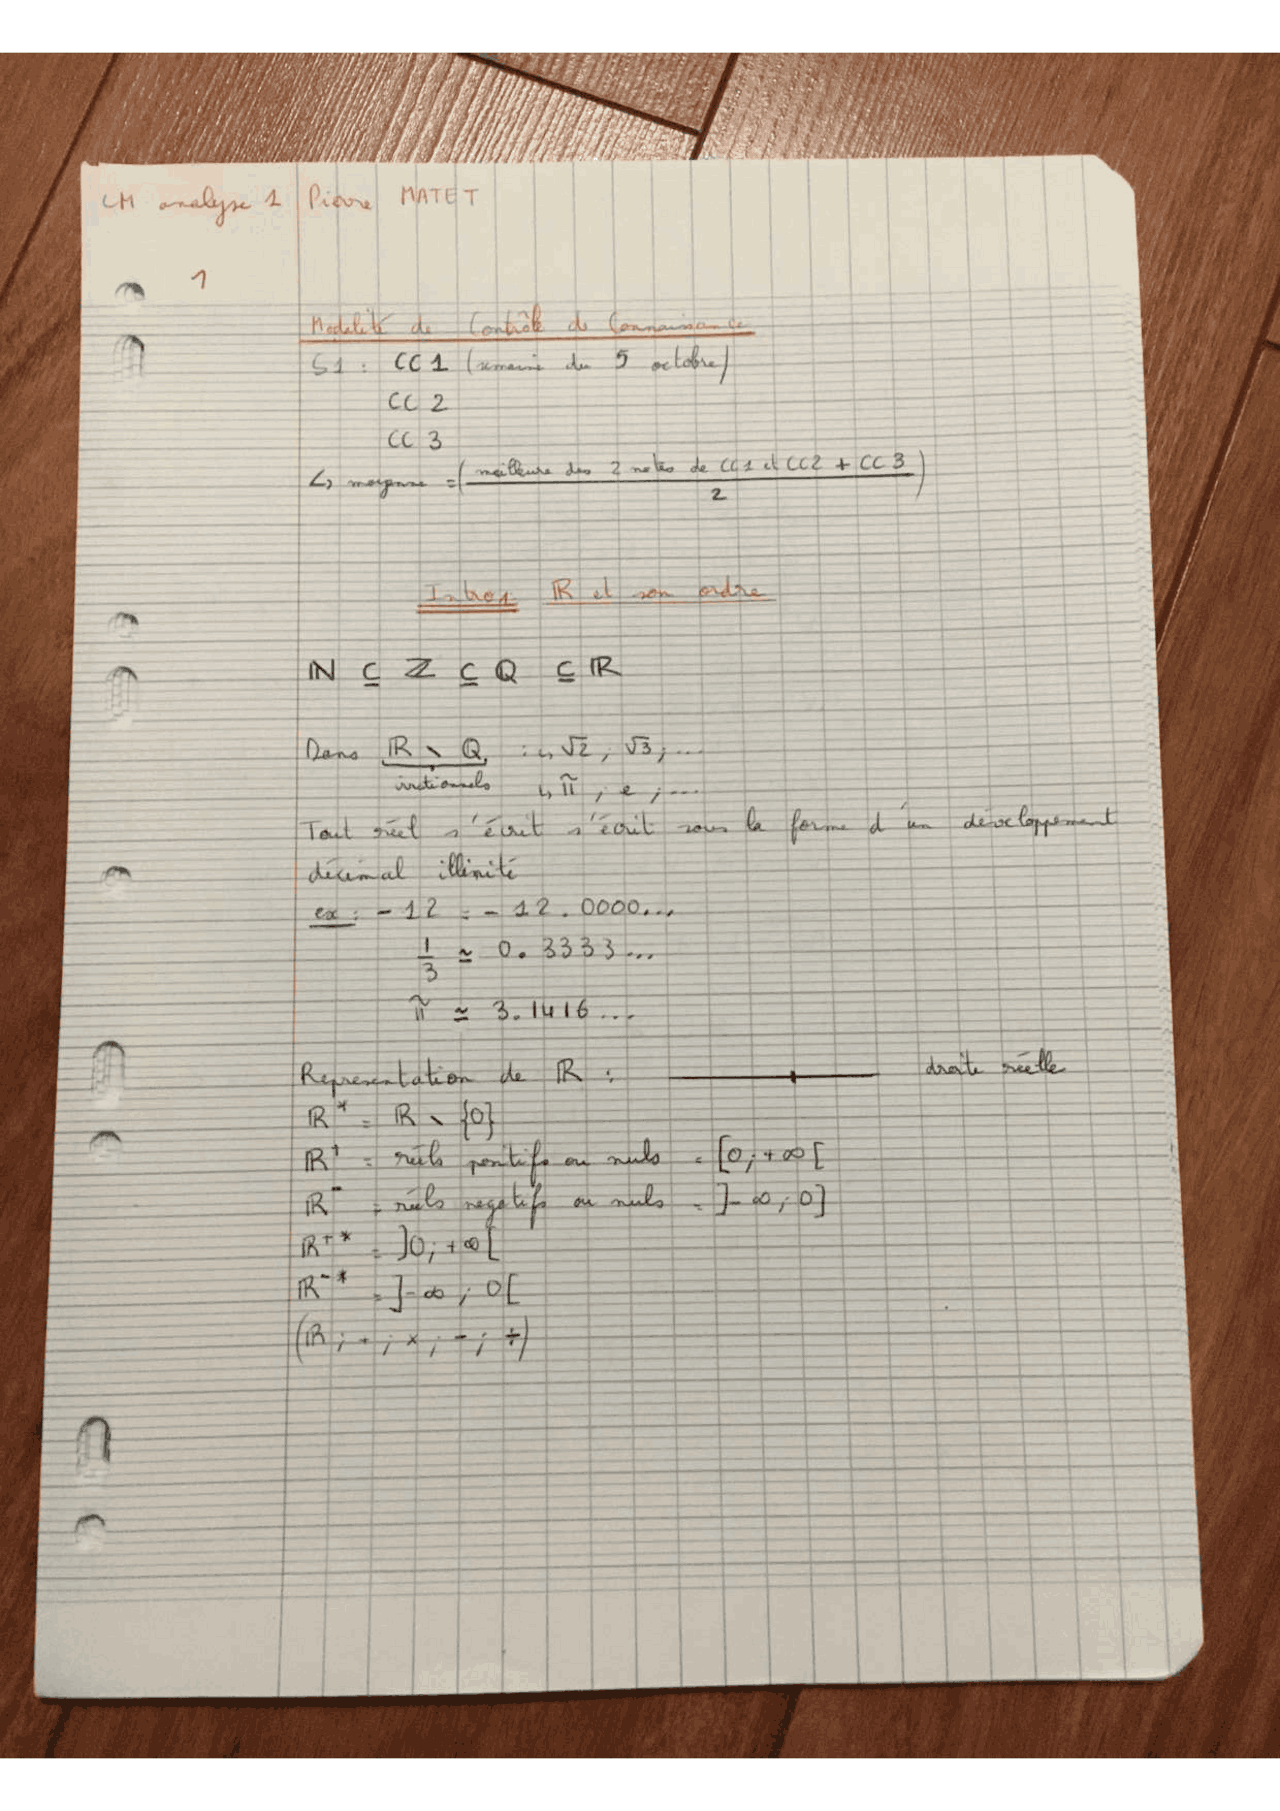 CM analyse 1 Pierre MATET
1
Modalité de Contrôle de Connaissance
S1 : CC 1 (semaine du 5 octobre)
CC 2
CC 3
↳ moyenne = (meilleure des 2 notes de CC1 et CC2 + CC3 / 2)
Intro1 ℝ et son ordre
ℕ ⊆ ℤ ⊆ ℚ ⊆ ℝ
Dans ℝ \ ℚ : ↳ √2 ; √3 ; ...
irrationnels ↳ π ; e ; ...
Tout réel s'écrit s'écrit sous la forme d'un développement
décimal illimité
ex : - 12 = - 12.0000...
1/3 ≃ 0.3333...
π ≃ 3.1416...
Representation de ℝ : droite réelle
ℝ* = ℝ \ {0}
ℝ⁺ = réels positifs ou nuls = [0 ; +∞[
ℝ⁻ = réels negatifs ou nuls = ]-∞ ; 0]
ℝ⁺* = ]0 ; +∞[
ℝ⁻* = ]-∞ ; 0[
(ℝ ; + ; × ; - ; ÷)